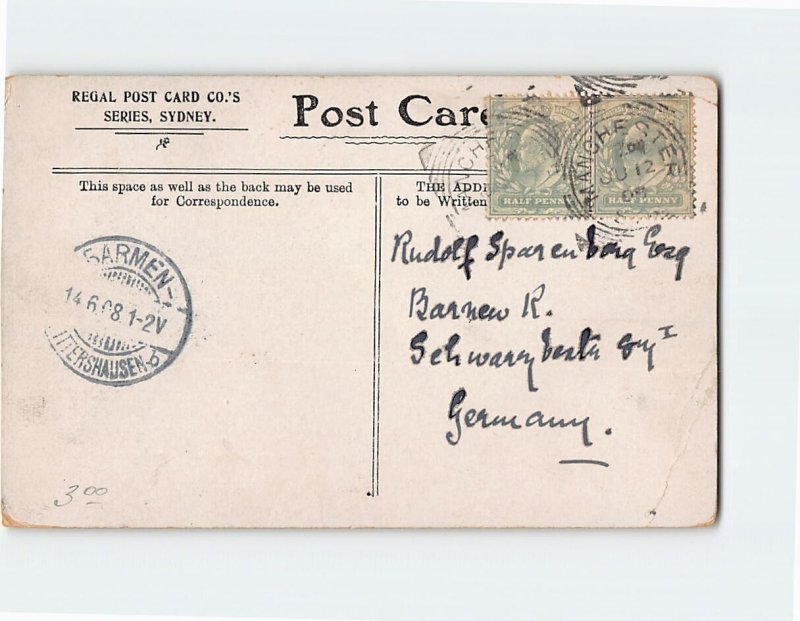 REGAL POST CARD CO.'S
SERIES, SYDNEY.
Post Car
This space as well as the back may be used
for Correspondence.
THE ADD
to be Written
HALF PENN
HALF PENNY
MANCHESTER
JU 12
08
BARMEN-1
14.6.08.1-2V
ITTERSHAUSEN-b
Rudolf Sparenberg Esq
Barmen R.
Germany.
3.00